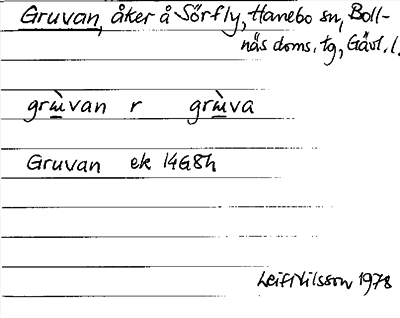 Gruvan, åker å Sörfly, Hanebo sn, Boll-
näs doms. tg, Gävl. l.
grɯ̀van r grɯ̀va
Gruvan ek 14G8h
Leif Nilsson 1978